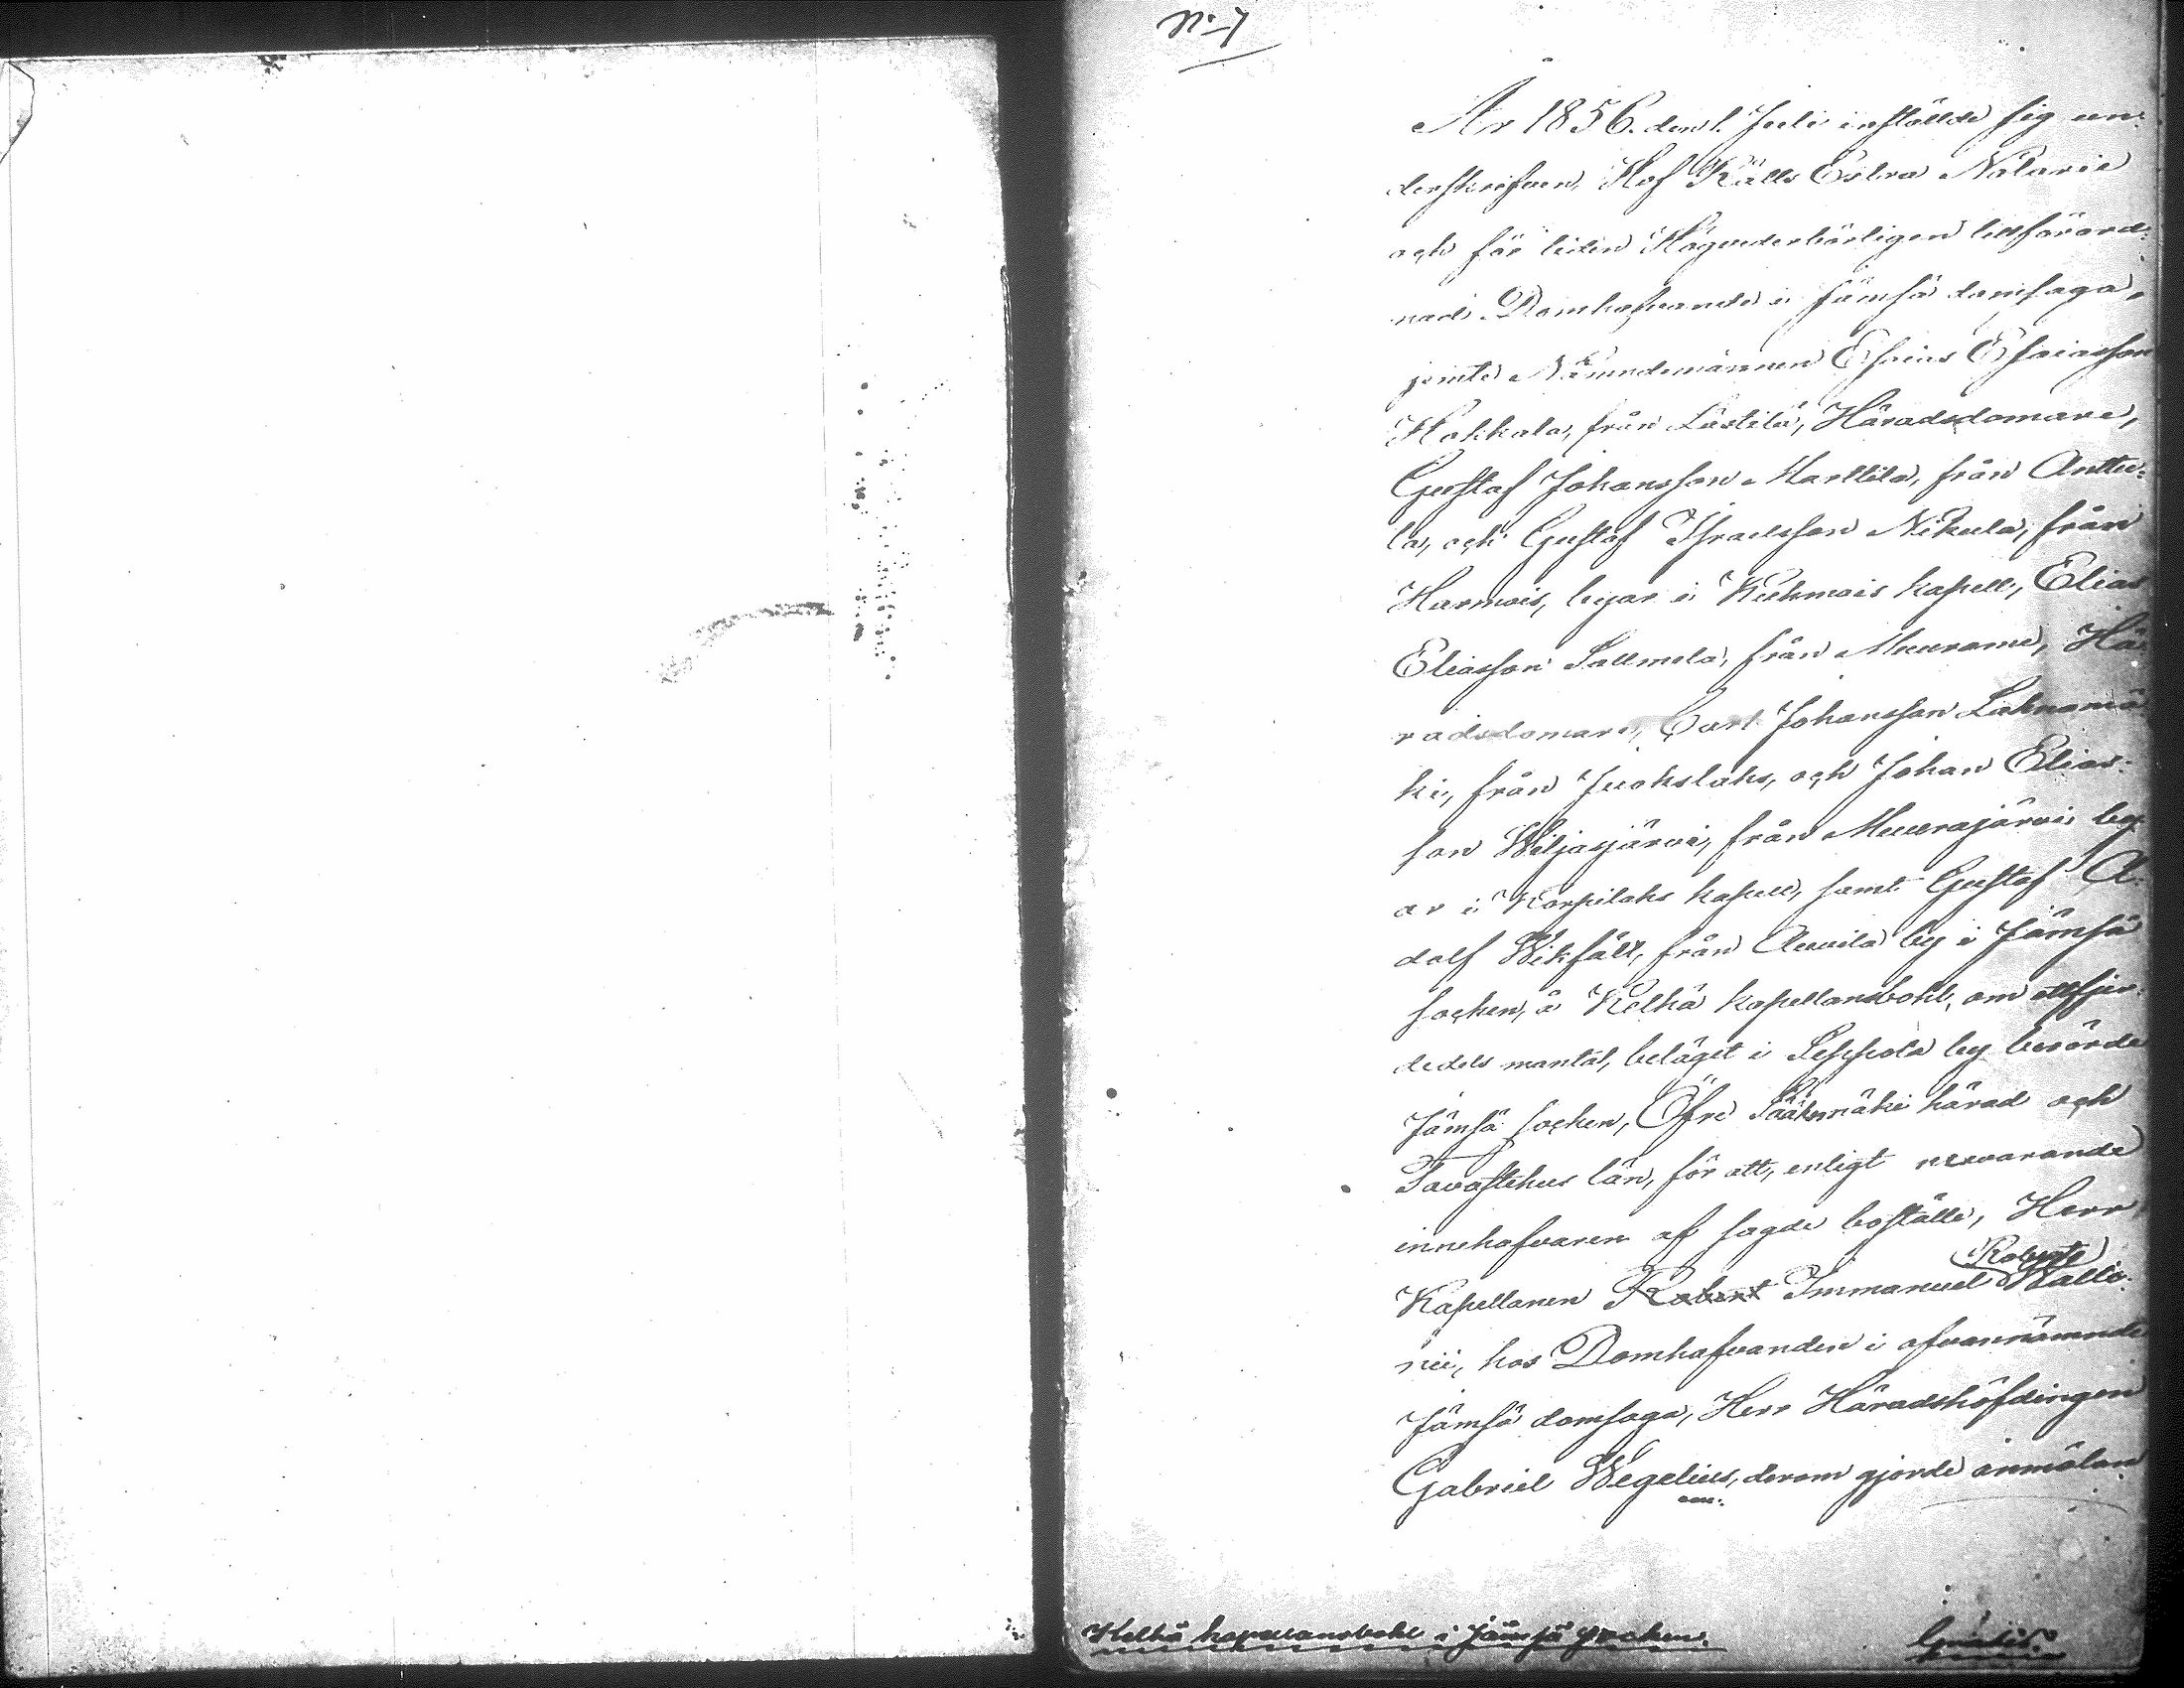 N:o 7
År 1856. den 1. Juli inställde sig un-
derskrifven, Hof Rätts Extra Notarie
och för tiden Högvederbörligen tillförord-
nad Domhafvande i Jämsä domsaga,
jemte Nämndemännen Esaias Esaiasson
Hakkala, från Lästilä, Häradsdomare,
Gustaf Johansson Marttila, från Anttu-
la, och Gustaf Israelsson Nikula, från
Harmois, byar i Kuhmois kapell, Elias
Eliasson Sallmela, från Muurame, Hä-
radsdomare, Carl Johansson Lahnamä-
ki, från Juokslaks, och Johan Elias-
son Wiljasjärvi, från Muurajärvi by-
ar i Korpilaks kapell, samt Gustaf A-
dolf Wikfält, från Auvila by i Jämsä
socken, å Kelhä kapellansbohl, om ettfjer-
dedels mantal, beläget i Seppola by berörde
Jämsä socken, Öfre Sääksmäki härad och
Tavastehus län, för att, enligt nuvarande
innehafvaren af sagde boställe, Herr
Roberts
Kapellanen Robert Immanuel Kallo-
nii, hos Domhafvanden i ofvannämnde
Jämsä domsaga, Herr Häradshöfdingen
Gabriel Wegelius, derom gjorde anmälan
om:
Kelhä kapellansbohl i Jämsä socken.
Gratis.